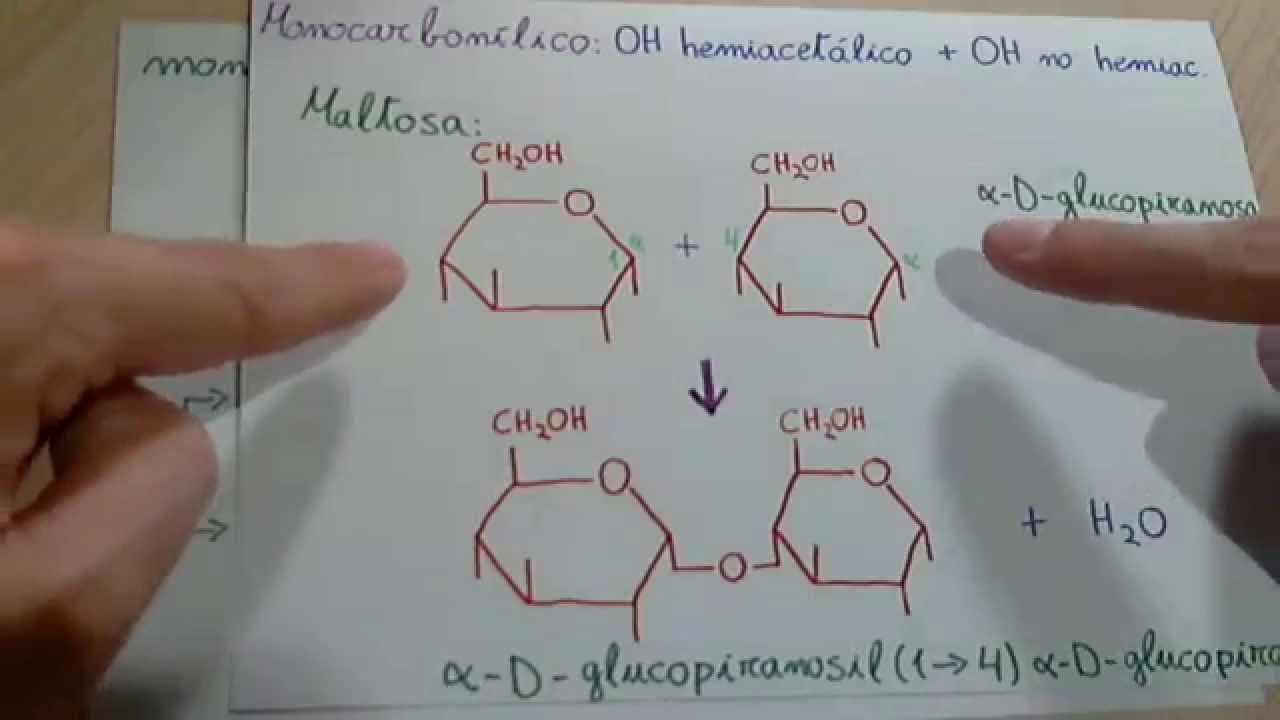 Monocarbonílico: OH hemiacetálico + OH no hemiac.
mon
Maltosa:
CH₂OH CH₂OH
α-D-glucopiranosa
O O
α 4 +
1 α
CH₂OH CH₂OH
O O
+ H₂O
O
α-D-glucopiranosil (1→4) α-D-glucopira